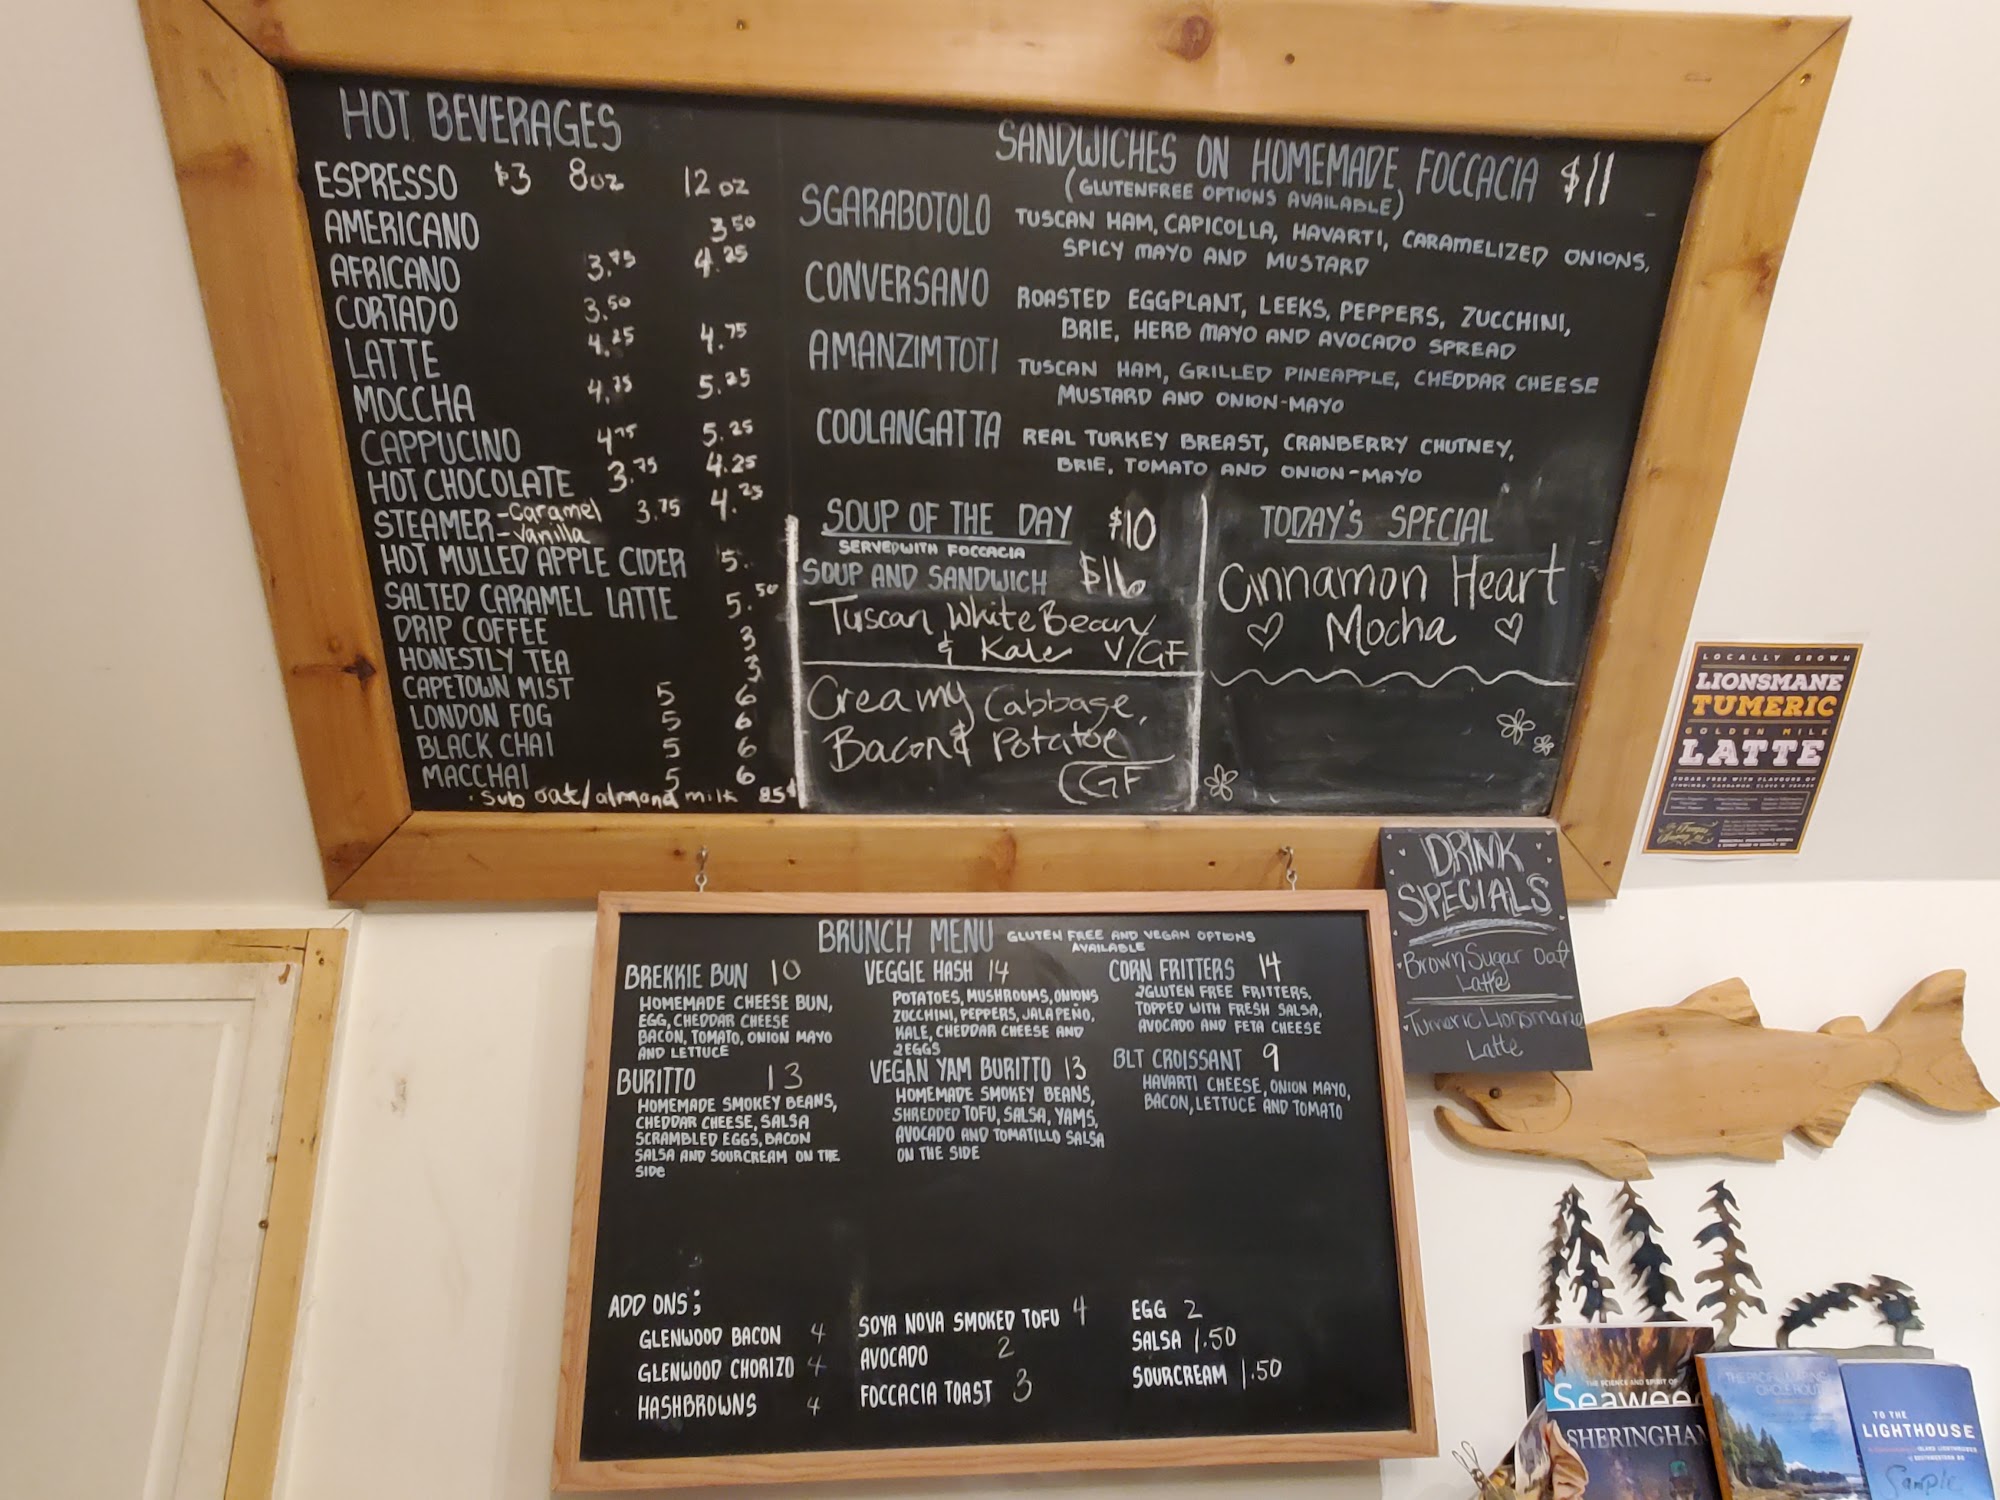 HOT BEVERAGES
ESPRESSO $3 8oz 12oz
AMERICANO 3.50
AFRICANO 3.75 4.25
CORTADO 3.50
LATTE 4.25 4.75
MOCCHA 4.75 5.25
CAPPUCINO 4.75 5.25
HOT CHOCOLATE 3.75 4.25
STEAMER - Caramel 3.75 4.25
- Vanilla
HOT MULLED APPLE CIDER 5.
SALTED CARAMEL LATTE 5.50
DRIP COFFEE 3
HONESTLY TEA 3
CAPETOWN MIST 5 6
LONDON FOG 5 6
BLACK CHAI 5 6
MACCHAI 5 6
. sub oat/almond milk 85¢
SANDWICHES ON HOMEMADE FOCCACIA $11
(GLUTENFREE OPTIONS AVAILABLE)
SGARABOTOLO TUSCAN HAM, CAPICOLLA, HAVARTI, CARAMELIZED ONIONS,
SPICY MAYO AND MUSTARD
CONVERSANO ROASTED EGGPLANT, LEEKS, PEPPERS, ZUCCHINI,
BRIE, HERB MAYO AND AVOCADO SPREAD
AMANZIMTOTI TUSCAN HAM, GRILLED PINEAPPLE, CHEDDAR CHEESE
MUSTARD AND ONION-MAYO
COOLANGATTA REAL TURKEY BREAST, CRANBERRY CHUTNEY,
BRIE, TOMATO AND ONION-MAYO
SOUP OF THE DAY $10
SERVED WITH FOCCACIA
SOUP AND SANDWICH $16
Tuscan White Bean
& Kale V/GF
Creamy Cabbage,
Bacon & Potatoe
GF
TODAY'S SPECIAL
Cinnamon Heart
Mocha
LOCALLY GROWN
LIONSMANE
TUMERIC
GOLDEN MILK
LATTE
SUGAR FREE WITH FLAVOURS OF
CINNIMON, CARDAMON, CLOVE & PEPPER
DRINK
SPECIALS
Brown Sugar Oat
Latte
Tumeric Lionsmane
Latte
BRUNCH MENU GLUTEN FREE AND VEGAN OPTIONS
AVAILABLE
BREKKIE BUN 10
HOMEMADE CHEESE BUN,
EGG, CHEDDAR CHEESE
BACON, TOMATO, ONION MAYO
AND LETTUCE
BURITTO 13
HOMEMADE SMOKEY BEANS,
CHEDDAR CHEESE, SALSA
SCRAMBLED EGGS, BACON
SALSA AND SOURCREAM ON THE
SIDE
VEGGIE HASH 14
POTATOES, MUSHROOMS, ONIONS
ZUCCHINI, PEPPERS, JALAPEÑO,
KALE, CHEDDAR CHEESE AND
2EGGS
VEGAN YAM BURITTO 13
HOMEMADE SMOKEY BEANS,
SHREDDED TOFU, SALSA, YAMS,
AVOCADO AND TOMATILLO SALSA
ON THE SIDE
CORN FRITTERS 14
2GLUTEN FREE FRITTERS,
TOPPED WITH FRESH SALSA,
AVOCADO AND FETA CHEESE
BLT CROISSANT 9
HAVARTI CHEESE, ONION MAYO,
BACON, LETTUCE AND TOMATO
ADD ONS;
GLENWOOD BACON 4
GLENWOOD CHORIZO 4
HASHBROWNS 4
SOYA NOVA SMOKED TOFU 4
AVOCADO 2
FOCCACIA TOAST 3
EGG 2
SALSA 1.50
SOURCREAM 1.50
THE SCIENCE AND SPIRIT OF
Seaweed
SHERINGHAM
THE PACIFIC MARINE
CIRCLE ROUTE
TO THE
LIGHTHOUSE
Sample